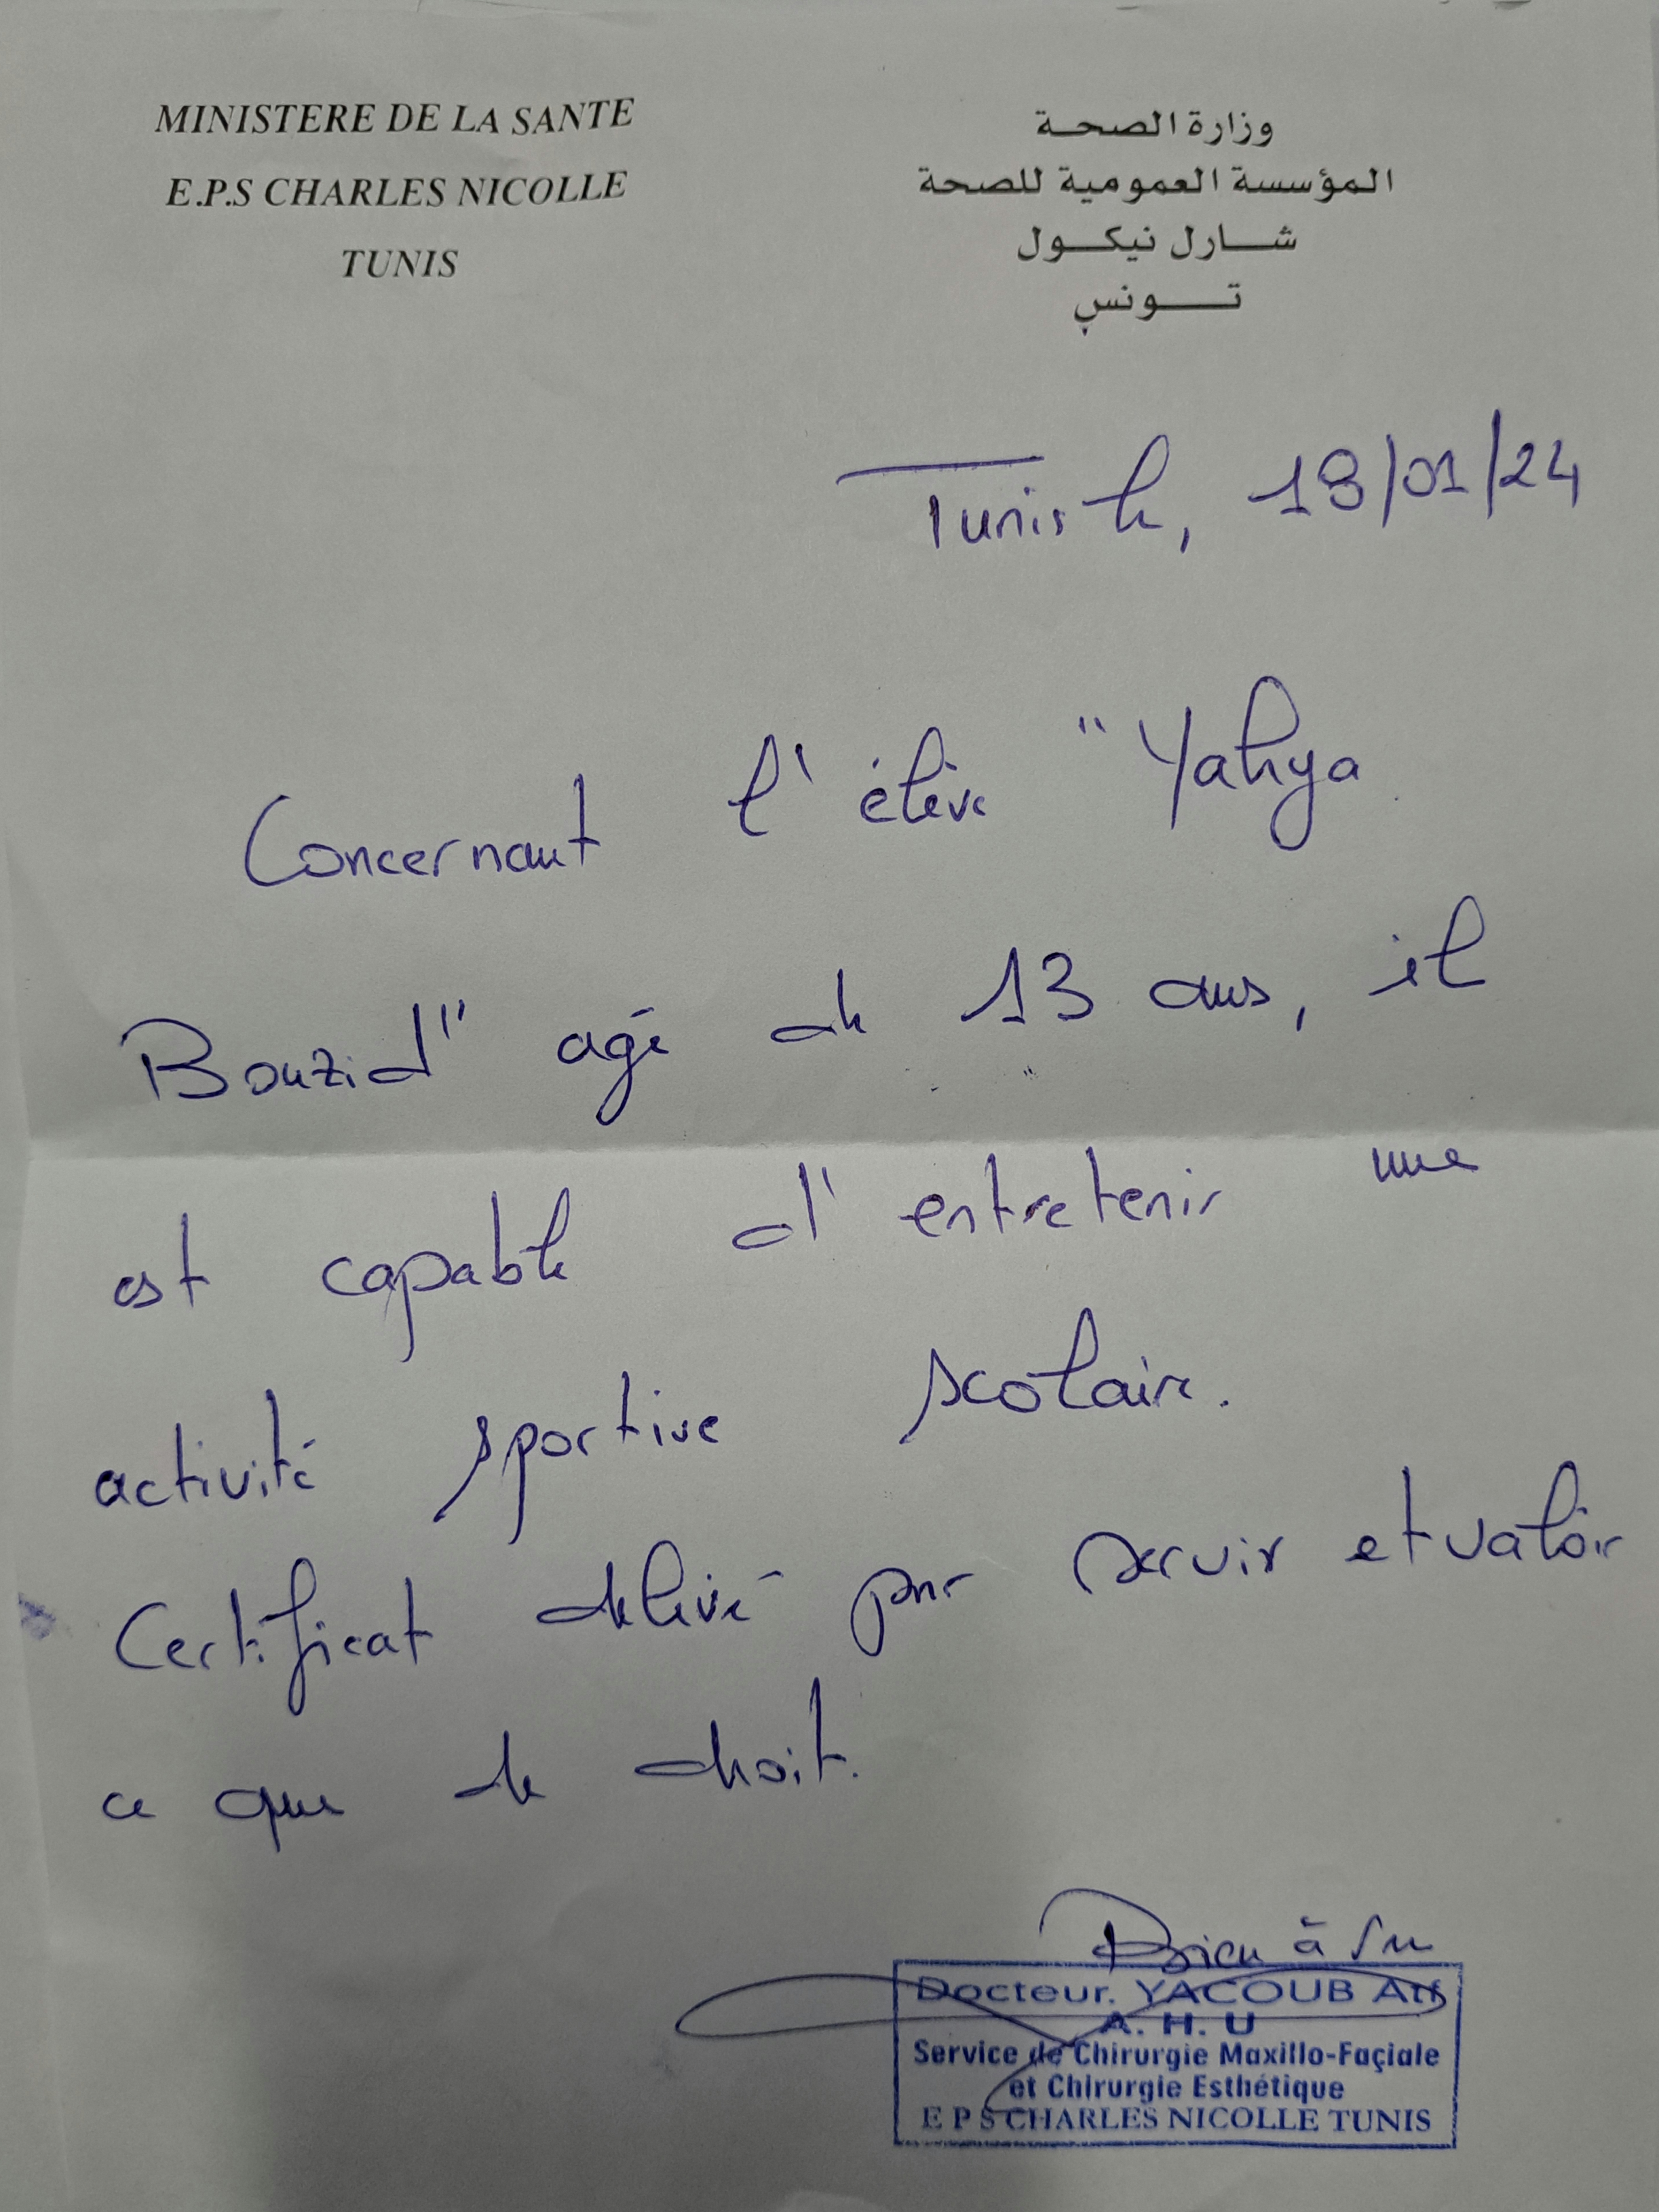 MINISTERE DE LA SANTE
E.P.S CHARLES NICOLLE
TUNIS
وزارة الصحة
المؤسسة العمومية للصحة
شارل نيكول
تونس
Tunis le, 18/01/24
Concernant l'élève "Yahya
Bouzid" agé de 13 ans, il
est capable d'entretenir une
activité sportive scolaire.
Certificat délivré pour servir et valoir
ce que de droit.
Bien à
Docteur. YACOUB
A. H. U
Service de Chirurgie Maxillo-Façiale
et Chirurgie Esthétique
E P S CHARLES NICOLLE TUNIS